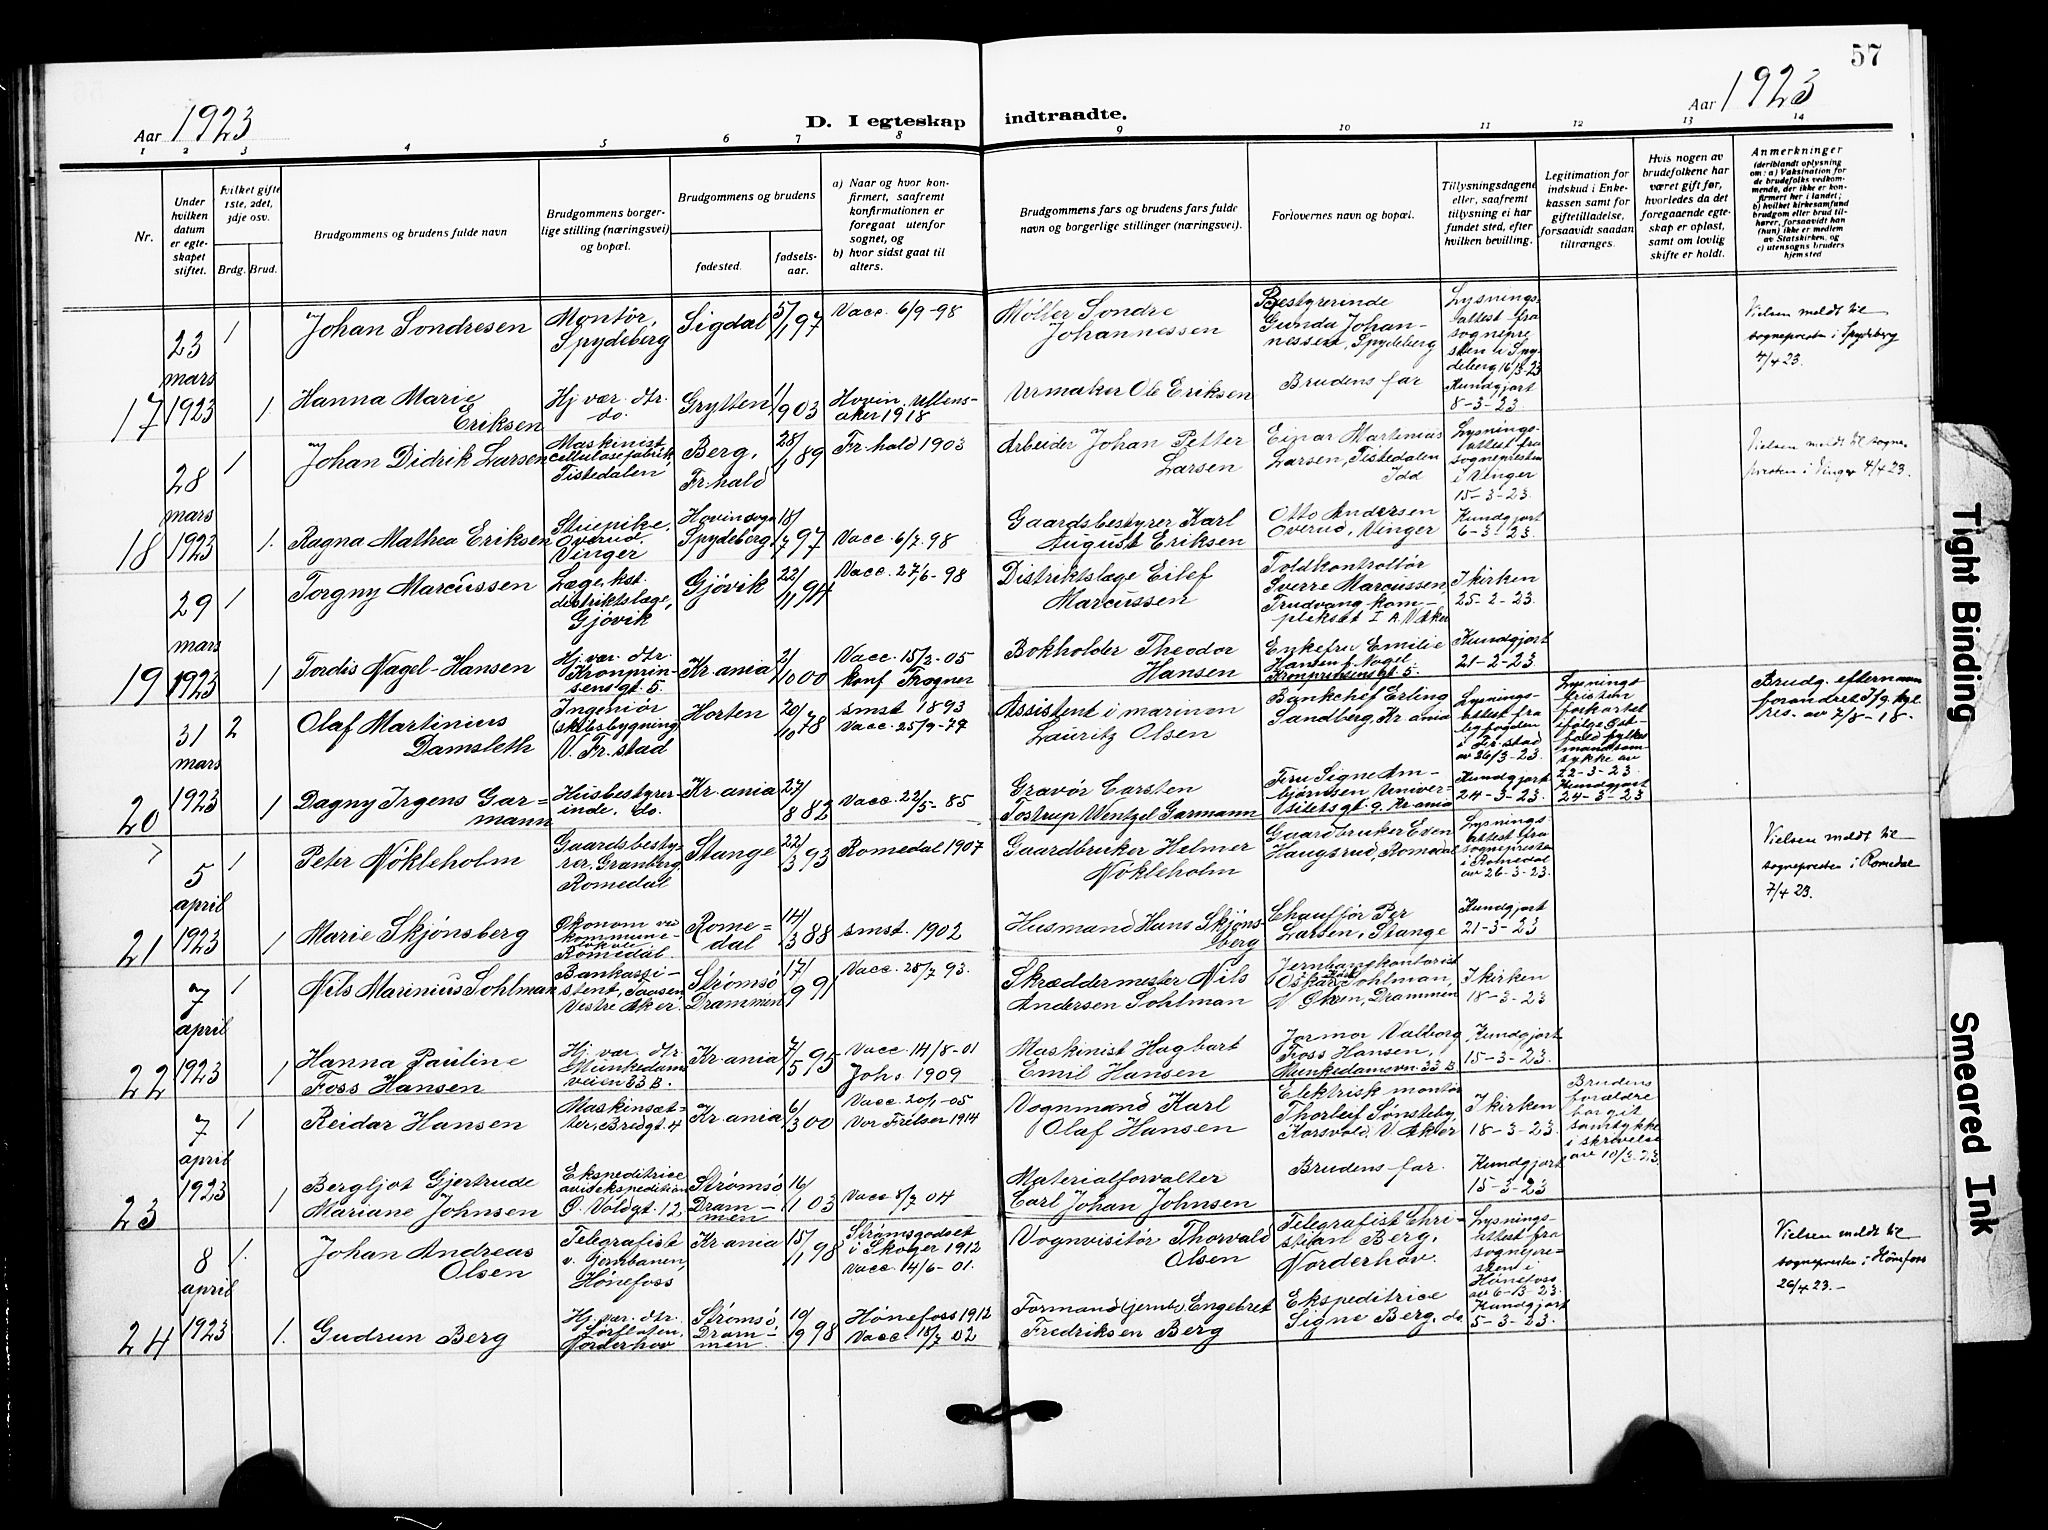 57
Aar 1923
D. I egteskap indtraadte.
Aar 1923
1 2 3 4 5 6 7 8 9 10 11 12 13 14
Nr.
Under hvilken datum er egteskapet stiftet.
Hvilket gifte 1ste, 2det, 3dje osv.
Brdg. Brud.
Brudgommens og brudens fulde navn
Brudgommens borgerlige stilling (næringsvei) og bopæl.
Brudgommens og brudens
fødested.
fødselsaar.
a) Naar og hvor konfirmert, saafremt konfirmationen er foregaat utenfor sognet, og
b) hvor sidst gaat til alters.
Brudgommens fars og brudens fars fulde navn og borgerlige stillinger (næringsvei).
Forlovernes navn og bopæl.
Tillysningsdagene eller, saafremt tillysning ei har fundet sted, efter hvilken bevilling.
Legitimation for indskud i Enkekassen samt for giftetilladelse, forsaavidt saadan tiltrænges.
Hvis nogen av brudefolkene har været gift før, hvorledes da det foregaaende egteskap er opløst, samt om lovlig skifte er holdt.
Anmerkninger
(deriblandt oplysning om: a) Vaksination for de brudefolks vedkommende, der ikke er konfirmert her i landet; b) hvilket kirkesamfund brudgom eller brud tilhører, forsaavidt han (hun) ikke er medlem av Statskirken, og c) utensogns bruders hjemsted
17 23 mars 1923
1 Johan Sondresen Montør, Spydeberg Sigdal 5/1 97 Vacc. 6/9-98 Møller Sondre Johannessen Bestyrerinde Gunda Johannessen, Spydeberg Lysningsattest fra sognepresten i Spydeberg 16/3-23 Vielsen meldt til sognepresten i Spydeberg 4/4 23.
1. Hanna Marie Eriksen Hj. vær. dtr. do. Grytten 11/1 903 Hovin, Ullensaker 1918 Urmaker Ole Eriksen Brudens far Kundgjort 8-3-23.
18 28 mars 1923
1 Johan Didrik Larsen Maskinist cellulosefabrik, Tistedalen Berg, Fr.hald 28/1 89 Fr.hald 1903 Arbeider Johan Petter Larsen Einar Martinius Larsen, Tistedalen Idd Lysningsattest fra sognepresten i Vinger 15-3-23. Vielsen meldt til sognepresten i Vinger 4/4 23.
1. Ragna Mathea Eriksen Stuepike, Overud, Vinger Hovin sogn Spydeberg 18/7 97 Vacc. 6/7-98 Gaardsbestyrer Karl August Eriksen Otto Andersen Overud, Vinger Kundgjort 6-3-23.
19 29 mars 1923
1 Torgny Marcussen Læge, kst. distriktslæge, Gjøvik Gjøvik 22/11 94 Vacc. 27/6-98 Distriktslæge Eilef Marcussen Toldkontrollør Sverre Marcussen, Trudvang kompleksat I A. V. Aker I kirken 25-2-23.
1 Tordis Nagel-Hansen Hj. vær. dtr. Kronprinsensgt. 5. Kr.ania 2/10 00 Vacc. 15/3-05 konf Frogner Bokholder Theodor Hansen Enkefru Emilie Hansen f. Nagel Kronprinsensgt. 5. Kundgjort 21-2-23.
20 31 mars 1923
2 Olaf Martinius Damsleth Ingeniør (skibsbygning) V. Fr.stad Horten 20/10 78 smst 1893 Vacc. 25/9-79 Assistent i marinen Lauritz Olsen Bankchef Erling Sandberg, Kr.ania Lysningsattest fra byfogden i Fr.stad av 26/3-23. Lysningsfristen forkortet ifølge Østfold fylkesmands samtykke av 22-3-23. Brudg. efternavn forandret ifg. kgl. res. av 7/8-18.
1 Dagny Irgens Garmann Husbestyrerinde, do. Kr.ania 27/8 82 Vacc. 22/5-85 Gravør Carsten Tostrup Wentzel Garmann Fru Signe Ambjørnsen, Universitetsgt. 9. Kr.ania Kundgjort 24-3-23. Kundgjort 24-3-23
21 5 april 1923
1 Peter Nøkleholm Gaardsbestyrer, Granberg, Romedal Stange 22/3 93 Romedal 1907 Gaardbruker Helmer Nøkleholm Gaardbruker Even Haugsrud, Romedal Lysningsattest fra sognepresten i Romedal av 26-3-23. Vielsen meldt til sognepresten i Romedal 7/4 23.
1 Marie Skjønsberg Økonom ved kommunelokale Romedal. Romedal 14/3 88 smst. 1902 Husmand Hans Skjønsberg Chauffør Per Larsen, Stange Kundgjort 21-3-23
22 7 april 1923
1 Nils Marinius Sohlman Bankassistent, Taasen, Vestre Aker. Strømsø Drammen 17/9 91 Vacc. 28/7 93. Skræddermester Nils Andersen Sohlman Jernbanekontorist Oskar Sohlman, V. Øren, Drammen I kirken 18-3-23
1 Hanna Pauline Foss Hansen Hj. vær. dtr. Munkedamsveien 33 B. Kr.ania 7/5 95 Vacc. 14/8-01 Johs 1909 Maskinist Hagbart Emil Hansen Jormor Valborg Foss Hansen, Munkedamsvn. 33 B Kundgjort 15-3-23.
23 7 april 1923
1 Reidar Hansen Maskinsætter, Bredgt. 4 Kr.ania 6/3 00 Vacc. 20/1-05 Vor Frelser 1914 Vognmand Karl Olaf Hansen Elektrisk montør Thorleif Sønsteby, Korsvold, V. Aker I kirken 18-3-23. Brudens forældre har git samtykke i skrivelse av 10/3-23.
1 Bergljot Gjertrude Mariane Johnsen Ekspeditrice avisekspedition Ø. Voldgt. 12, Strømsø Drammen 16/1 03 Vacc 8/7 04 Materialforvalter Carl Johan Johnsen Brudens far. Kundgjort 15-3-23
24 8 april 1923
1. Johan Andreas Olsen Telegrafist v. Jernbanen, Hønefoss Kr.ania 15/11 98 Strømsgodset i Skoger 1912 Vacc. 14/6-01. Vognvisitør Thorvald Olsen Telegrafist Christian Berg, Norderhov. Lysningsattest fra sognepresten i Hønefoss av 6-13-23. Vielsen meldt til sognepresten i Hønefoss 26/4 23.-
1. Gudrun Berg Hj. vær. dtr. Norderhov Strømsø, Drammen. 19/9 98 Hønefoss 1912 Vacc. 15/7 02 Formand (jernb.) Engebret Fredriksen Berg Ekspeditrice Signe Berg, do. Kundgjort 5-3-23.
Tight Binding
Smeared Ink